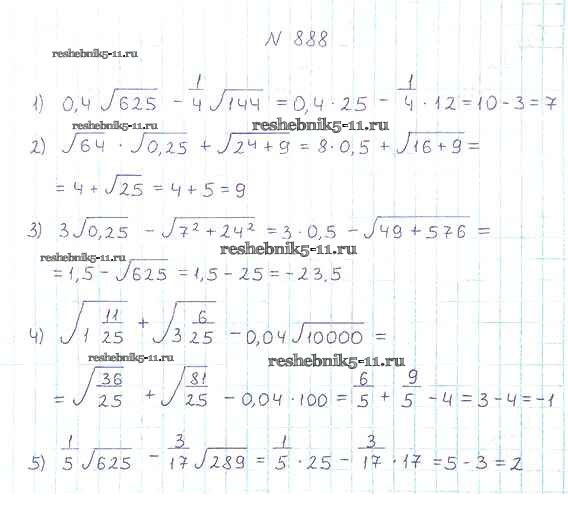 № 888
reshebnik5-11.ru
1) 0,4 √625 - 1/4 √144 = 0,4 · 25 - 1/4 · 12 = 10 - 3 = 7
reshebnik5-11.ru reshebnik5-11.ru
2) √64 · √0,25 + √(2⁴ + 9) = 8 · 0,5 + √(16 + 9) =
= 4 + √25 = 4 + 5 = 9
3) 3 √0,25 - √(7² + 24²) = 3 · 0,5 - √(49 + 576) =
reshebnik5-11.ru reshebnik5-11.ru
= 1,5 - √625 = 1,5 - 25 = - 23,5
4) √(1 11/25) + √(3 6/25) - 0,04 √10000 =
reshebnik5-11.ru reshebnik5-11.ru
= √(36/25) + √(81/25) - 0,04 · 100 = 6/5 + 9/5 - 4 = 3 - 4 = -1
5) 1/5 √625 - 3/17 √289 = 1/5 · 25 - 3/17 · 17 = 5 - 3 = 2